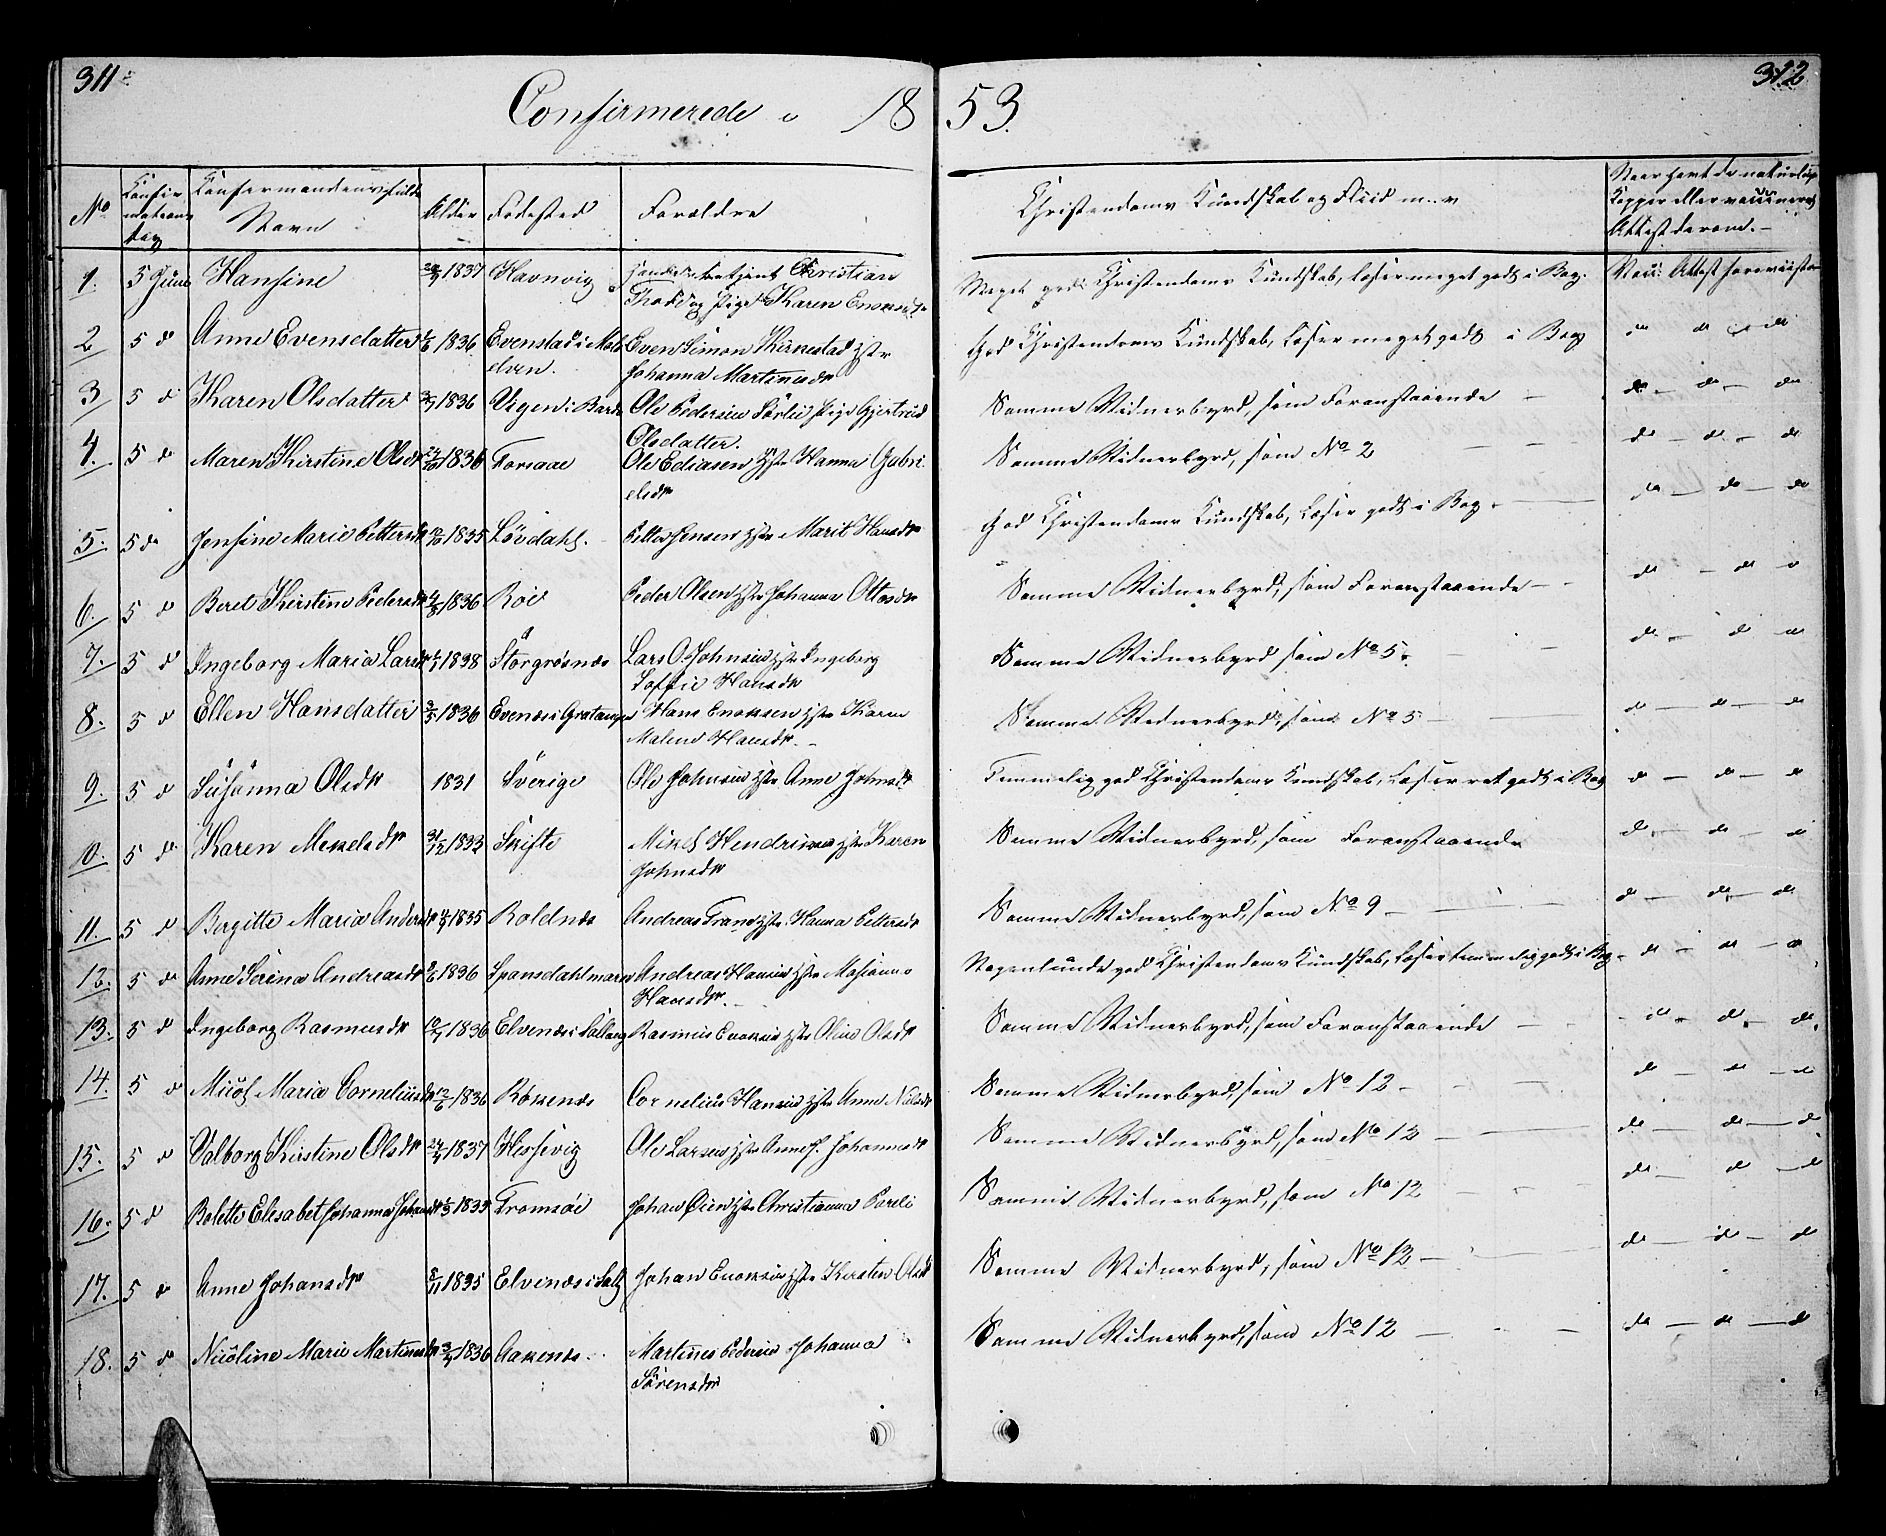 311
312
Confirmerede i 1853.
No
Confirmations Dag
Confirmandens fulde Navn
Alder
Fødested
Forældre
Christendoms Kundskab og Fliid m. v
Naar havt de naturlige Kopper eller vaccineret Attest derom.
1. 5 Juni Hansine 1837 Havnvig Christian Pige Karen Meget god Christendoms Kundskab, læser meget godt i Bog. Vacc: Attest foreviist
2 5 d Anne Evensdatter 1836 Evenstad i Maalselven. Even Simon Kirnestad Hstr Johanna Martinusdr God Christendoms Kundskab, Læser meget godt i Bog d d d
3 5 d Karen Olsdatter 1836 Bardo Ole Pedersen Sörlie Pige Gjertrud Olsdatter. Samme Vidnesbyrd, som Foranstaaende d d d
4. 5 d Maren Kirstine Olsdr 1836 Forsaae Ole Eliasen Hstr Hanna Gabrielsdr Samme Vidnesbyrd, som No 2 d d d
5. 5 d Jensine Marie Pettersdr 1835 Lövdahl. Petter Jensen Hstr Marit Hansdr God Christendoms Kundskab, Læser godt i Bog. d d d
6. 5 d Beret Kirstine Pedersdr 1836 Röe Peder Olsen Hstr Johanna Ottosdr Samme Vidnesbyrd, som Foranstaaende d d d
7. 5 d Ingeborg Maria Larsdr 1838 Storgrøsnæs Lars O. Johnsen Hstr Ingeborg Soffie Hansdr Samme Vidnesbyrd som No 5. d d d
8. 5 d Ellen Hansdatter 1836 Evenæs i Gratangen Hans Enoksen Hstr Karen Malene Hansdr. Samme Vidnesbyrd, som No 5 d d d
9. 5 d Susanna Olsdr 1831 Sverige Ole Johnsen Hstr Anne Johnsdr Temmelig god Christendoms Kundskab, Læser ret godt i Bog d d d
10. 5 d Karen Mikelsdr 31/12 1833 Skifte Mikel Hendriksen Hstr Karen Johnsdr Samme Vidnesbyrd, som Foranstaaende d d d
11. 5 d Bergitte Maria Andersdr 1835 Roldnæs Andreas Hstr Hanna Pettersdr Samme Vidnesbyrd, som No 9 d d d
12. 5 d Anne Serina Andreasdr 1836 Spansdahlmarn Andreas Hansen Hstr Marianne Hansdr. Nogenlunde god Christendoms Kundskab, Læser temmelig godt i Bog d d d
13. 5 d Ingeborg Rasmusdr 1836 Elvenæs i Sallang Rasmus Enoksen Hstr Oline Olsdr Samme Vidnesbyrd, som Foranstaaende d d d
14. 5 d Maria Corneliusdr 12/6 1836 Roknæs Cornelius Hansen Hstr Anne Nilsdr Samme Vidnesbyrd, som No 12 d d d
15. 5 d Valborg Kistine Olsdr 1837 Hessevig Ole Larsen Hstr Anne J. Johannesdr Samme Vidnesbyrd, som No 12 d d d
16. 5 d Bolette Elisabet Johanna Johansdr 1835 Tromsøe Johan Øien Hstr Christianna Pareli Samme Vidnesbyrd, som No 12 d d d
17. 5 d Anne Johansdr 1835 Elvenæs i Sall Johan Enoksen Hstr Kirsten Olsdr Samme Vidnesbyrd, som No 12 d d d
18. 5 d Nicoline Marie Martinusdr 1836 Aaknæs. Martinus Pedersen Johanna Sörensdr Samme Vidnesbyrd, som No 12 d d d